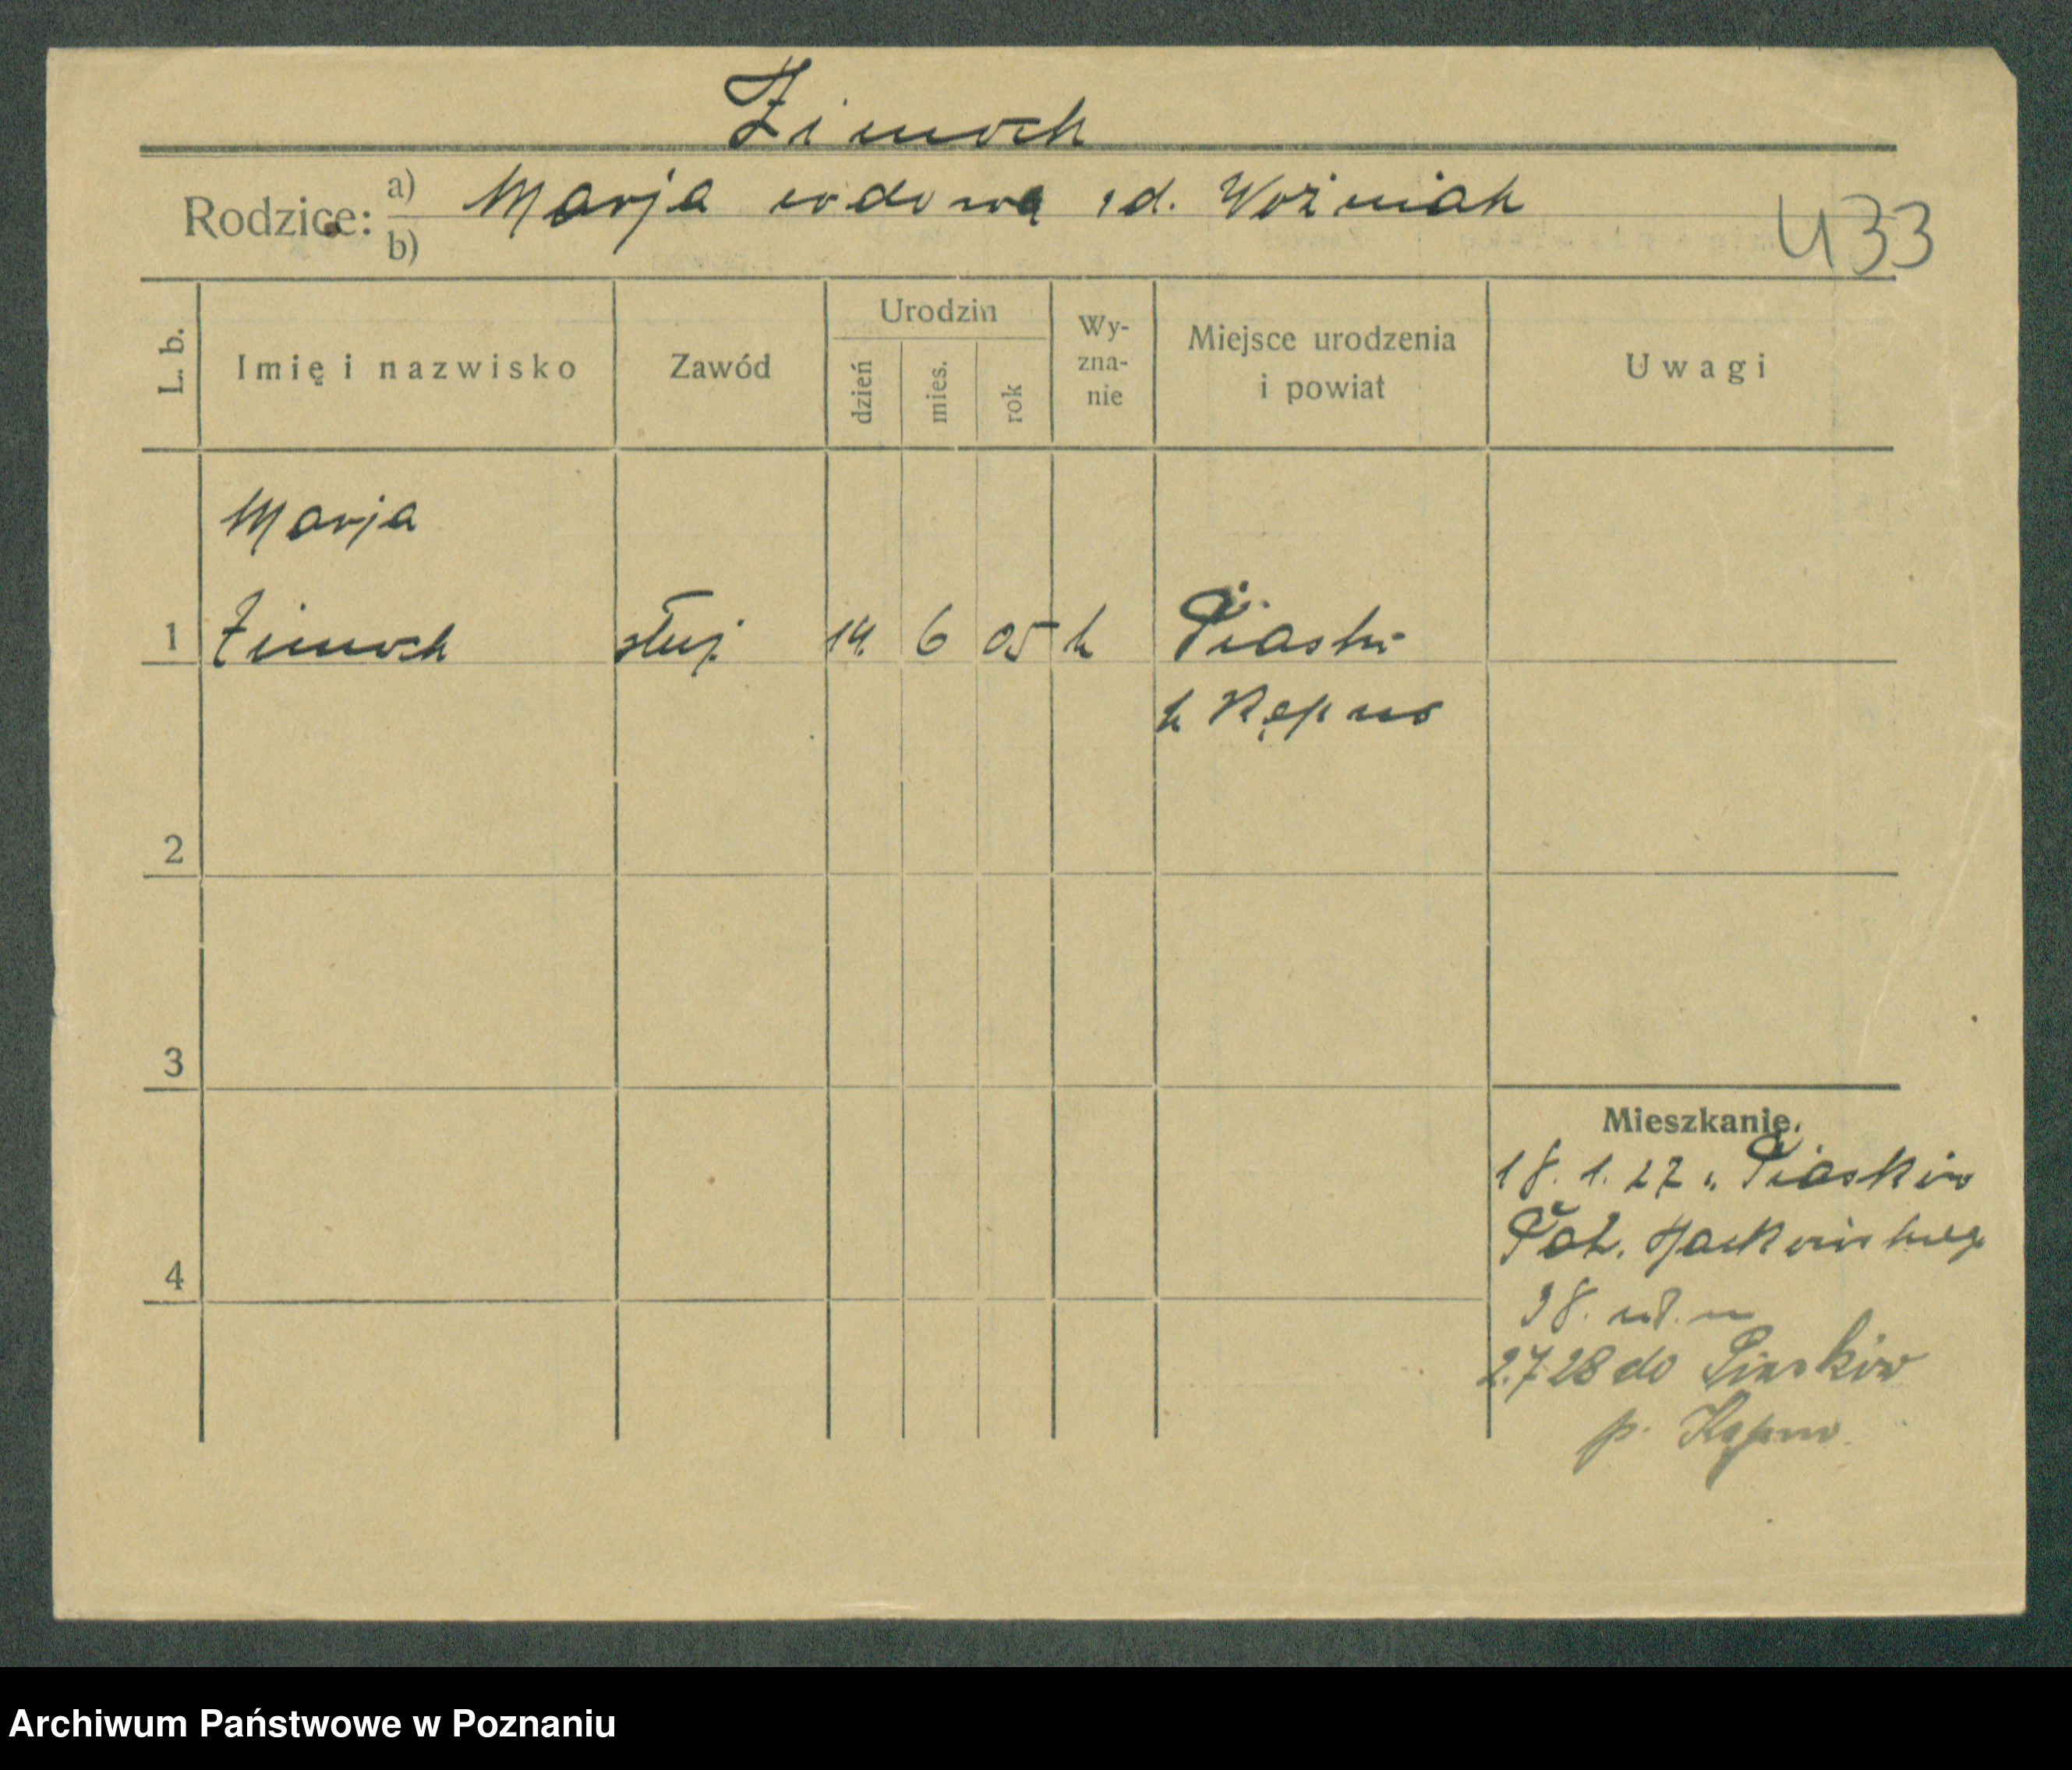 Zimoch
Rodzice: a) Marja wdowa zd. Woźniak
b)
433
L. b.
Imię i nazwisko
Zawód
Urodzin
dzień
mies.
rok
Wy-
zna-
nie
Miejsce urodzenia
i powiat
Uwagi
Marja
1 Zimoch służ. 14. 6 05 k Piaski
k Kępno
2
3
Mieszkanie.
18. 1. 27 Piasków
4
38.
2.7 28 do Piasków
p. Kępno.
Archiwum Państwowe w Poznaniu